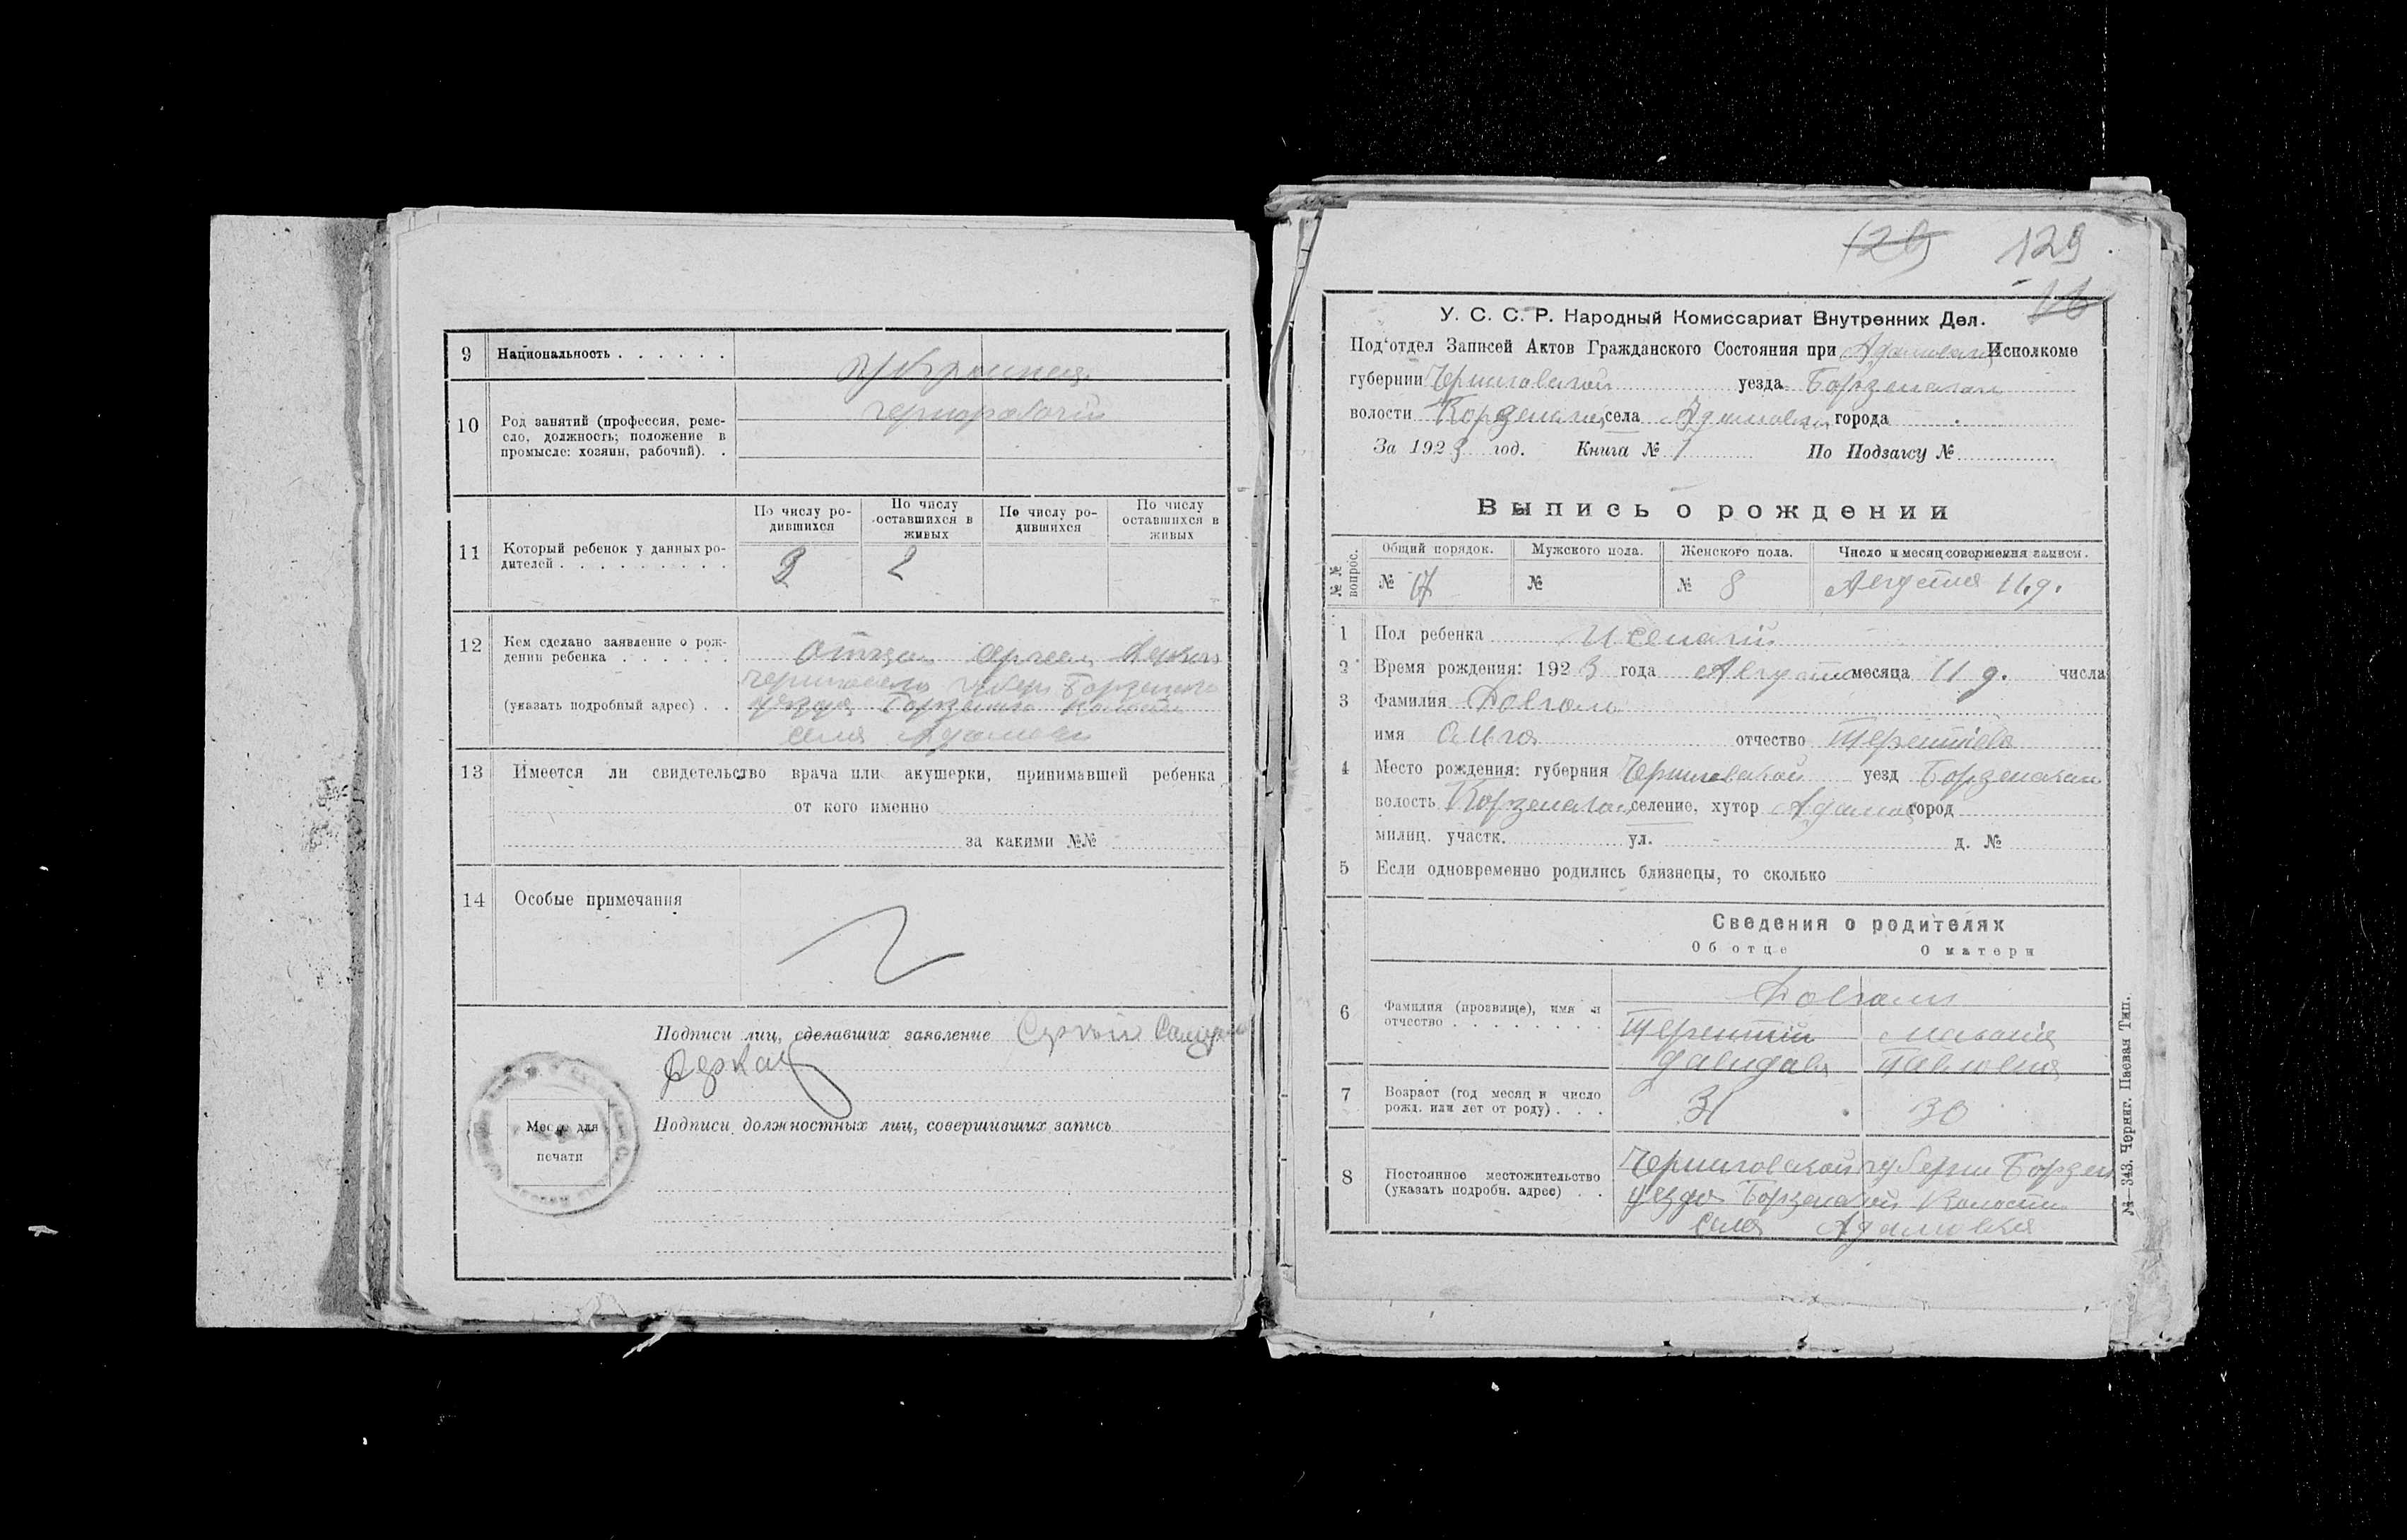 9 Национальность . . . . . .
Украинец
10 Род занятий (профессия, реме-
сло, должность; положение в
промысле: хозяин, рабочий). .
чернорабочий
По числу ро-
дившихся
По числу
оставшихся в
живых
По числу ро-
дившихся
По числу
оставшихся в
живых
11 Который ребенок у данных ро-
дителей . . . . . . . . .
2 2
12 Кем сделано заявление о рож-
дении ребенка . . . . . .
отцом Сергеем Деркач
(указать подробный адрес) . .
уезда Борзенской Волости
села Адамовки
13 Имеется ли свидетельство врача или акушерки, принимавшей ребенка
от кого именно
за какими №№
14 Особые примечания
Подписи лиц, сделавших заявление Сергей
Деркач
Место для
печати
Подписи должностных лиц, совершивших запись
129
У. С. С. Р. Народный Комиссариат Внутренних Дел.
Под'отдел Записей Актов Гражданского Состояния при Адамовском Исполкоме
губернии Черниговской уезда Борзенском
волости Борзенской села Адамовки города
За 1923 год. Книга № 1 По Подзагсу №
Выпись о рождении
№ № вопрос.
Общий порядок. Мужского пола. Женского пола. Число и месяц совершения записи.
№ 17 № № 8 Августа 11 д.
1 Пол ребенка Женский
2 Время рождения: 1923 года Августа месяца 11 д. числа
3 Фамилия Довгаль
имя отчество Терентиева
4 Место рождения: губерния Черниговской уезд Борзенском
волость Борзенской селение, хутор Адамов город
милиц. участк. ул. д. №
5 Если одновременно родились близнецы, то сколько
Сведения о родителях
Об отце О матери
6 Фамилия (прозвище), имя и
отчество . . . . . . . .
Довгали
Терентий Мелания
Давидов Павловна
7 Возраст (год месяц и число
рожд. или лет от роду) . . .
31 30
8 Постоянное местожительство
(указать подробн. адрес) . .
Черниговской губерни Борзен
уезда Борзенской Волости
села Адамовка
№—343. Черниг. Паевая Тип.